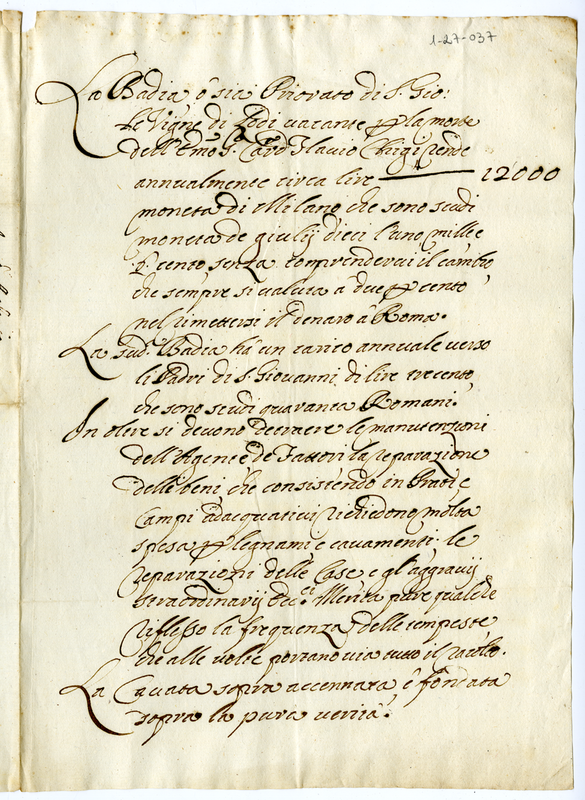 1-27-037
La Badia ò sia Priorato di S. Gio:
le Vigne di Lodi vacante p la morte
dell'Emo S. Card Flavio Chigi rende
annualmente circa lire 12000
moneta di Milano che sono scudi
moneta de giulij dieci l'uno mille e
cento senza comprendervi il cambio
che sempre si valuta à due p cento
nel rimettersi il denaro à Roma.
La sud. Badia hà un carico annuale verso
li Padri di S. Giovanni di lire trecento
che sono scudi quaranta Romani.
In oltre si devono detraere le manutenzioni
dell'Agente e de Fattori la reparazione
delle beni, che consistendo in Prati e
Campi adacquativi richiedono molta
spesa p legnami e cavamenti, le
reparazioni delle Case e gl'aggravij
straordinarij &c. Merita pure qualche
riflesso la frequenza delle tempeste
che alle volte portano via tutto il racolto.
La Cavata sopra accennata è fondata
sopra la pura verità.